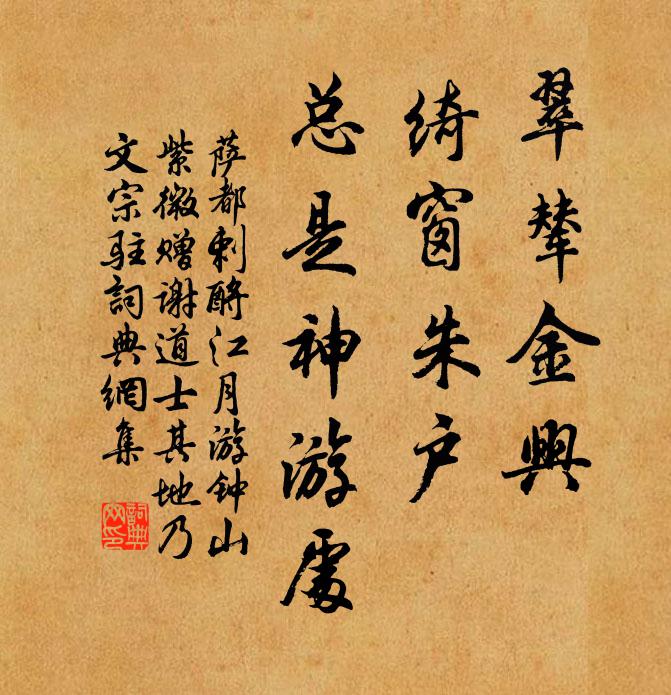 翠輦金輿
綺窗朱户
总是神游處
萨都剌酹江月游钟山
紫微赠谢道士其地乃
文宗驻詞典網集
詞典网印